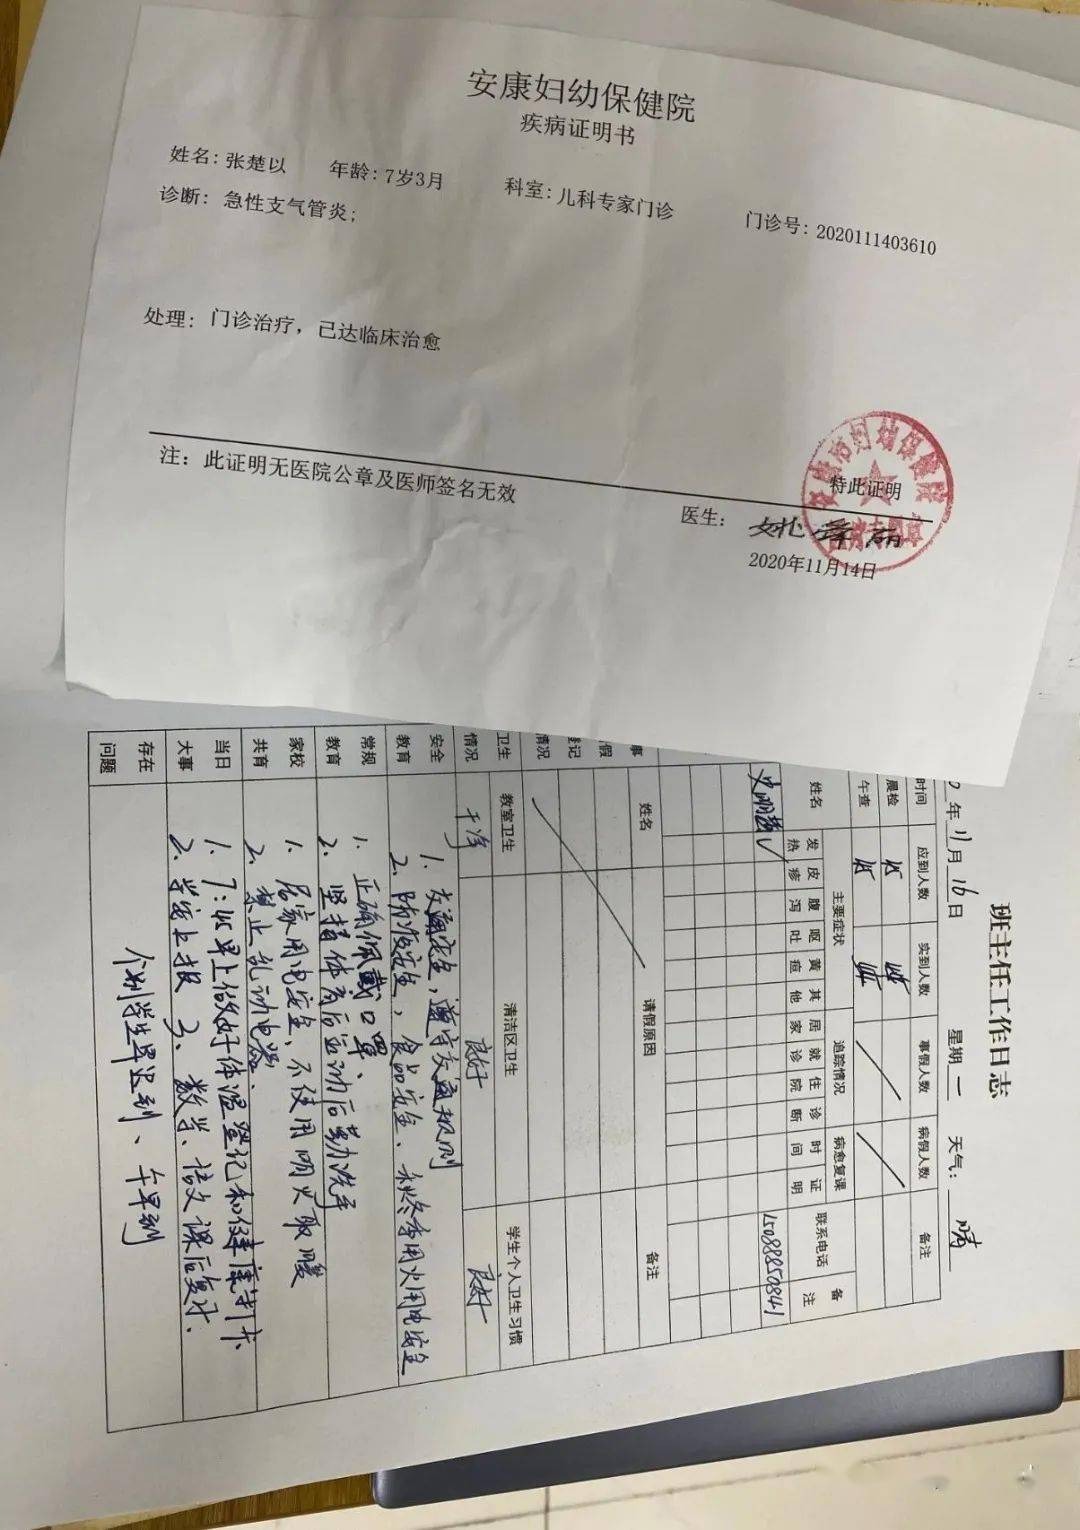 安康妇幼保健院
疾病证明书
姓名: 张楚以 年龄: 7岁3月 科室: 儿科专家门诊 门诊号: 2020111403610
诊断: 急性支气管炎;
处理: 门诊治疗, 已达临床治愈
特此证明
注: 此证明无医院公章及医师签名无效
医生:
2020年11月14日
班主任工作日志
年11月16日 星期一 天气: 晴
时间 应到人数 实到人数 事假人数 病假人数 备注
晨检
午查
姓名 主要症状 追踪情况 病愈复课 联系电话 备注
发热 皮疹 腹泻 呕吐 黄疸 其他 居家 就诊 住院 诊断 时间 证明
15088850841
事假登记情况 姓名 请假原因 备注
卫生情况 教室卫生 清洁区卫生 学生个人卫生习惯
干净 良好 良好
安全教育 1. 交通安全,遵守交通规则
2. 防疫安全,食品安全、秋冬季用火用电安全
常规教育 1. 正确佩戴口罩、
2. 坚持体育后运动后勤洗手
家校共育 1. 居家用电安全、不使用明火取暖
2. 禁止乱动电器、
当日大事 1. 7:45早上做好体温登记和健康打卡
2. 学安上报 3、数学、语文课后复习.
存在问题 个别学生早迟到、午早到